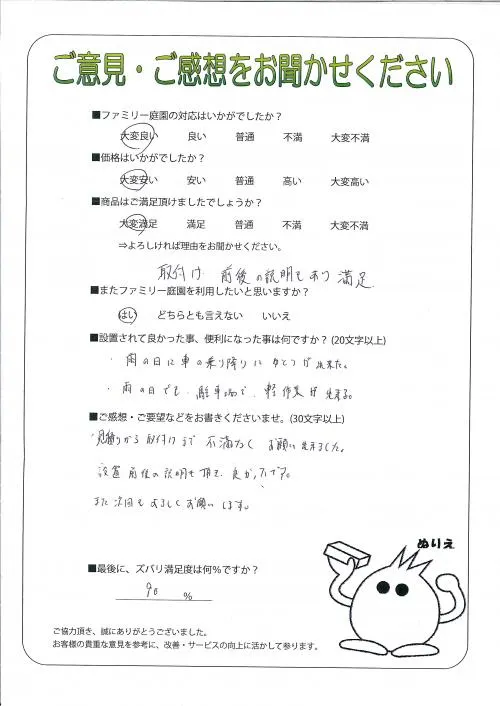 ご意見・ご感想をお聞かせください
■ファミリー庭園の対応はいかがでしたか？
大変良い 良い 普通 不満 大変不満
■価格はいかがでしたか？
大変安い 安い 普通 高い 大変高い
■商品はご満足頂けましたでしょうか？
大変満足 満足 普通 不満 大変不満
⇒よろしければ理由をお聞かせください。
取付け 前後の説明もあり 満足
■またファミリー庭園を利用したいと思いますか？
はい どちらとも言えない いいえ
■設置されて良かった事、便利になった事は何ですか？(20文字以上)
・雨の日に車の乗り降りにゆとりが出来た。
・雨の日でも、駐車場で、軽作業が出来る。
■ご感想・ご要望などをお書きくださいませ。(30文字以上)
見積りから取付けまで不満なくお願い出来ました。
設置前後の説明も頂き、良かったです。
また次回もよろしくお願いします。
ぬりえ
■最後に、ズバリ満足度は何％ですか？
90 %
ご協力頂き、誠にありがとうございました。
お客様の貴重な意見を参考に、改善・サービスの向上に活かして参ります。